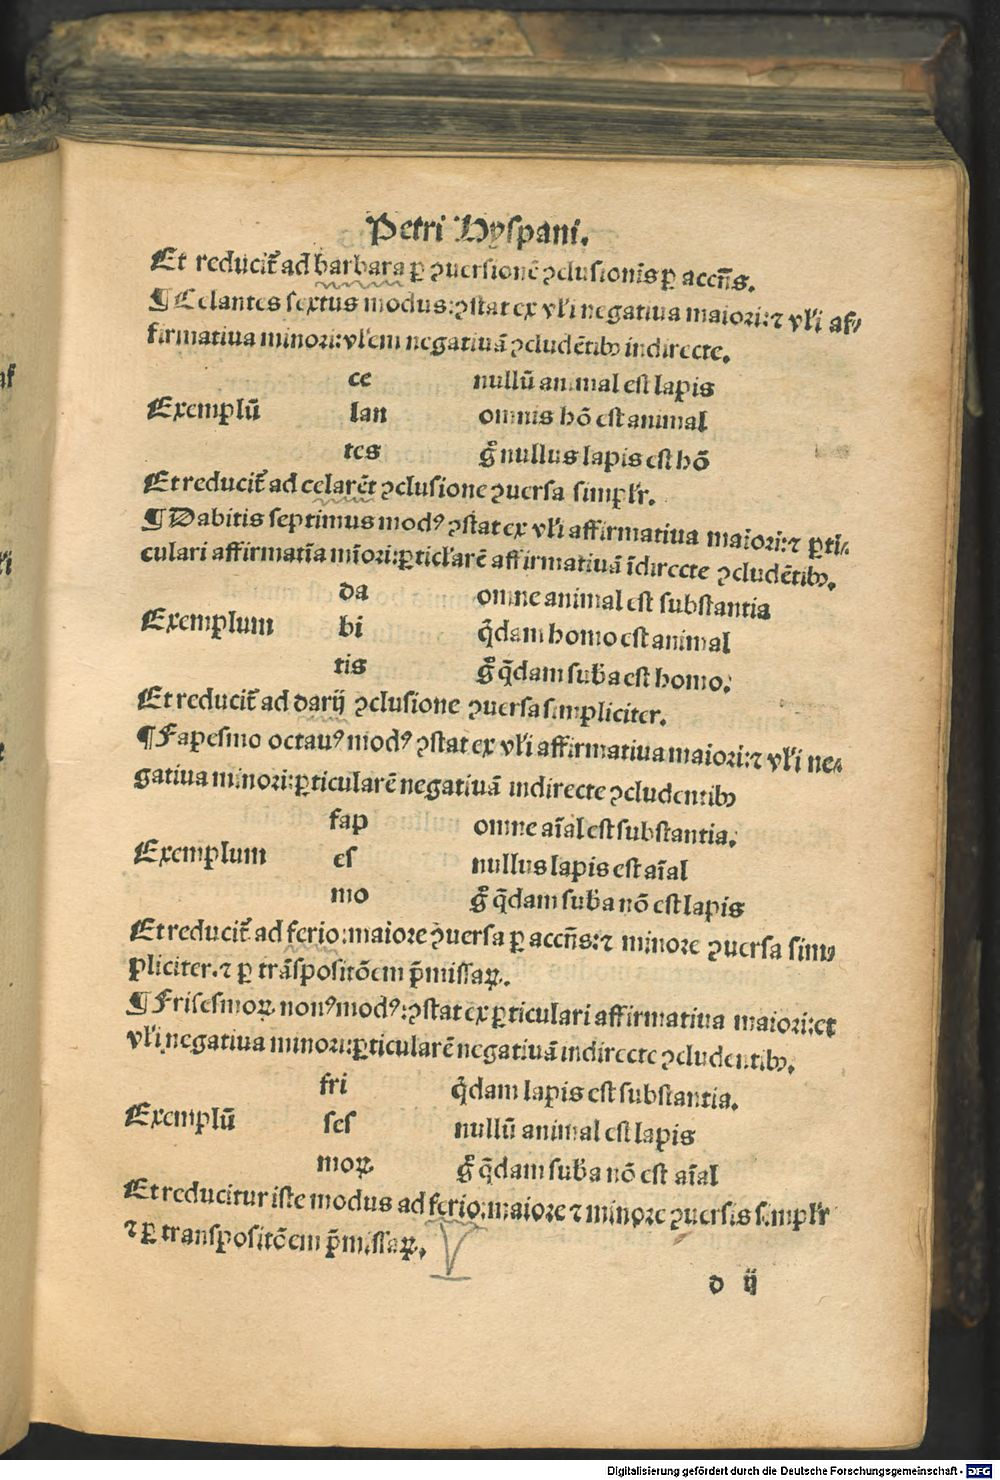 Petri Hyspani.
Et reducit᷑ ad barbara ꝑ ꝯuersionē ꝯclusionis ꝑ accn̄s.
¶ Celantes sextus modus: ꝯstat ex vl̓i negatiua maiori: ⁊ vl̓i af⸗
firmatiua minori: vl̓em negatiuā ꝯcludētibꝰ indirecte.
ce nullū animal est lapis
Exemplū lan omnis hō est animal
tes gͦ nullus lapis est hō
Et reducit᷑ ad celarēt ꝯclusione ꝯuersa simpl̓r.
¶ Dabitis septimus modꝰ ꝯstat ex vl̓i affirmatiua maiori: ⁊ ꝑti⸗
culari affirmatīa mīori: ꝑticl̓arē affirmatiuā īdirecte ꝯcludētibꝰ.
da omne animal est substantia
Exemplum bi q̄dam homo est animal
tis gͦ q̄dam sub̓a est homo.
Et reducit᷑ ad darij ꝯclusione ꝯuersa simpliciter.
¶ Fapesmo octauꝰ modꝰ ꝯstat ex vl̓i affirmatiua maiori: ⁊ vl̓i ne⸗
gatiua minori: ꝑticularē negatiuā indirecte ꝯcludentibꝰ
fap omne aīal est substantia.
Exemplum es nullus lapis est aīal
mo gͦ q̄dam sub̓a nō est lapis
Et reducit᷑ ad ferio: maiore ꝯuersa ꝑ accn̄s: ⁊ minore ꝯuersa sim⸗
pliciter. ⁊ ꝑ trāspositōem p̄missaꝝ.
¶ Frisesmoꝝ nonꝰ modꝰ: ꝯstat ex ꝑticulari affirmatiua maiori: et
vl̓i negatiua minori: ꝑticularē negatiuā indirecte ꝯcludentibꝰ.
fri q̄dam lapis est substantia.
Exemplū ses nullū animal est lapis
moꝝ gͦ q̄dam sub̓a nō est aīal
Et reducitur iste modus ad ferio: maiore ⁊ minore ꝯuersis simpl̓r
⁊ ꝑ transpositōem p̄missaꝝ.
d ij
Digitalisierung gefördert durch die Deutsche Forschungsgemeinschaft - DFG